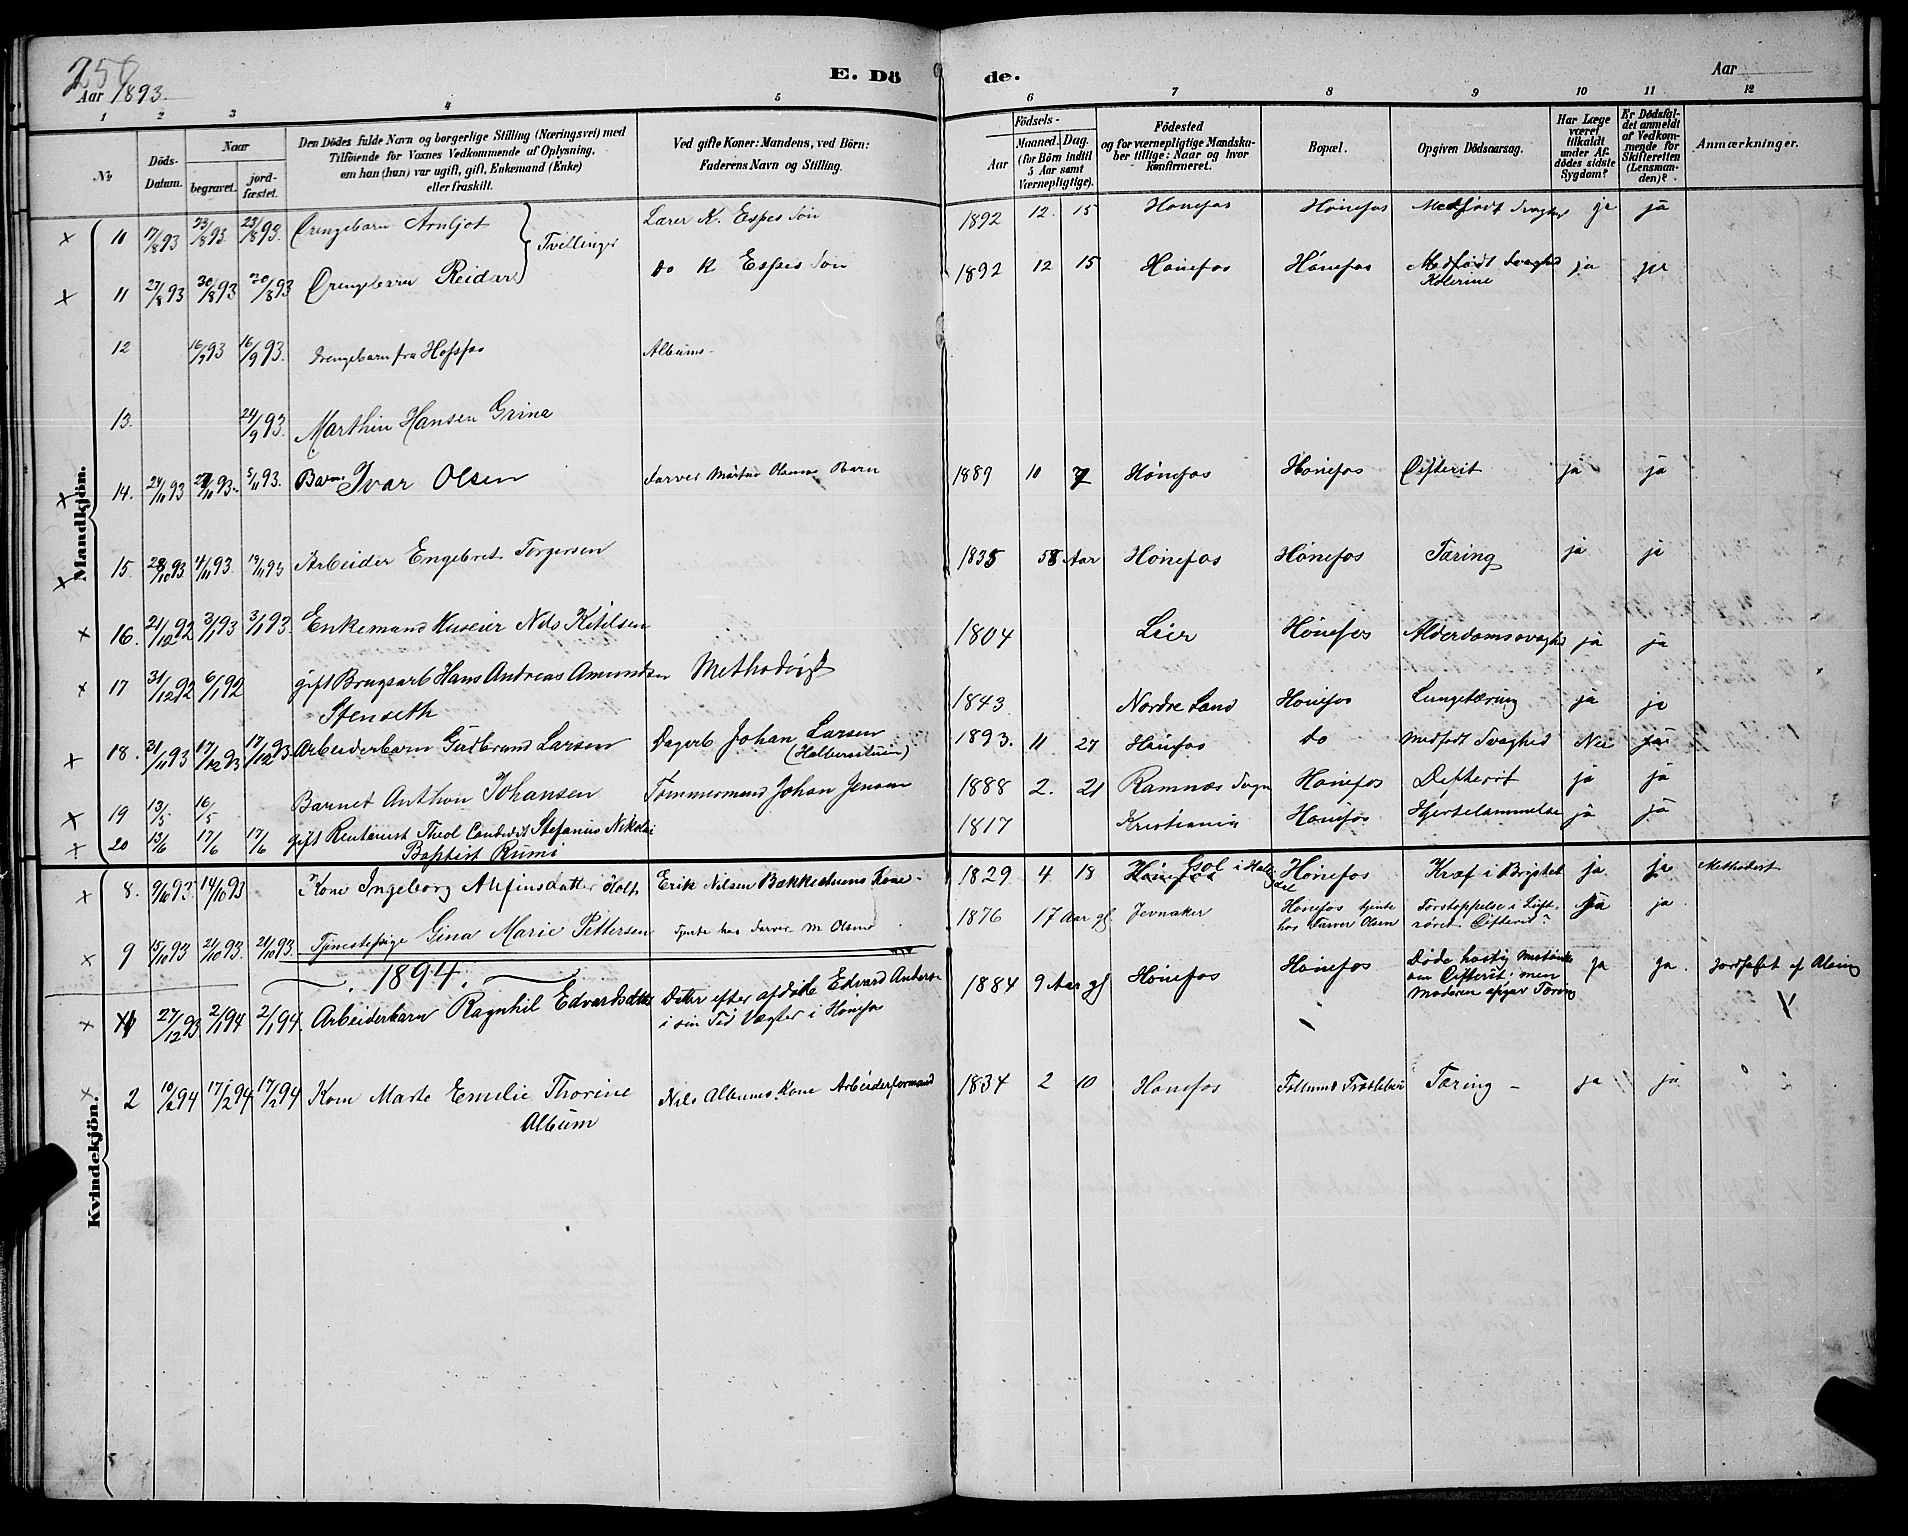 258
Aar 1893.
E. Dö
de.
Aar
1 2 3 4 5 6 7 8 9 10 11 12
No
Döds-Datum.
Naar
begravet.
jord-fæstet.
Den Dödes fulde Navn og borgerlige Stilling (Næringsvei) med
Tilföiende for Voxnes Vedkommende af Oplysning,
om han (hun) var ugift, gift, Enkemand (Enke)
eller fraskilt.
Ved gifte Koner: Mandens, ved Börn:
Faderens Navn og Stilling.
Födsels-
Aar
Maaned. Dag.
(for Börn indtil
5 Aar samt
Værnepligtige).
Födested
og for værnepligtige Mandska-
ber tillige: Naar og hvor
konfirmeret.
Bopæl.
Opgiven Dödsaarsag.
Har Læge
været
tilkaldt
under Af-
dödes sidste
Sygdom?
Er Dödsfal-
det anmeldt
af Vedkom-
mende for
Skifteretten
(Lensman-
den)?
Anmærkninger.
Mandkjön.
x 10 17/8 93 23/8 93 23/8 93. Drengebarn Arnljot } Tvillinger Lærer K. Espes Søn 1892 12. 15 Hønefos Hønefos Medfødt Svaghed ja ja
x 11 27/8 93 30/8 93 30/8 93 Drengebarn Reidar Do K Espes Søn 1892 12 15 Hønefos Hønefos Medfødt Svaghed ja ja
Kolerine
12 16/9 93 16/9 93. Drengebarn fra Hofsfos Albums
13. 24/9 93. Marthin Hansen Grina
x 14. 24/11 93 27/11 93. 5/11 93. Barn Ivar Olsen Farver Martin Olsens Barn 1889 10 7 Hønefos Hønefos Difterit ja ja
x 15. 28/10 93 4/11 93. 19/11 93 Arbeider Engebret Torgersen 1835 58 Aar Hønefos Hønefos Tæring ja ja
x 16. 21/12 92 3/1 93 3/1 93. Enkemand Huseier Nils Kitilsen 1804 Lier Hønefos Alderdomssvaghed ja ja
x 17 31/12 92 6/1 92 gift Brugsarb Hans Andreas Amundsen Methodist
Stenseth 1843 Nordre Land Hønefos Lungetæring ja ja
x 18. 31/11 93 17/12 93 17/12 93 Arbeiderbarn Gudbrand Larsen Dagarb Johan Larsen 1893. 11 27 Hønefos do Medfødt Svaghed Nei ja
x 19 13/5 16/5 Barnet Anthon Johansen Tømmermand Johan Jensen 1888 2. 21 Ramnæs Sogn Hønefos Defterit ja ja
x 20 13/6 17/6 17/6 gift Rentenist Theol Candidat Stefanus Nikolai 1817 Kristiania Hønefos Hjertelammelse ja ja
Baptist Rumi
Kvindekjön.
x 8. 9/10 93. 14/10 93 Kone Ingeborg Alfinsdatter Holt Erik Nilsen Bækkschuens Kone 1829 4 18 Hønefos Gol i Hallgdal Hønefos Kræf i Brystet ja ja Methodist
x 9 15/10 93 21/10 93. 21/10 93. Tjenestepige Gina Marie Pettersen Tjente hos Farver M Olsen 1876 17 Aar gl Jevnaker Hønefos tjente Forstoppelse i Luft- ja ja
hos Farver Olsen røret Difterit?
1894.
x 1 27/12 93 2/1 94 2/1 94. Arbeiderbarn Ragnhil Edvardsdatter Datter efter afdøde Edvard Anders- 1884 9 Aar gl Hønefos Hønefos Døde hastig Mistænkt ja ja. Jordfæstet af
i sin Tid Vægter i Hønefos om Difterit, men
Moderen opgav Tæring V
x 2 10/2 94 17/2 94 17/2 94 Kone Marte Emelie Thorine Nils Albums Kone Arbeiderformand 1834 2 10 Hønefos Follum Træsliberi Tæring ja ja
Album